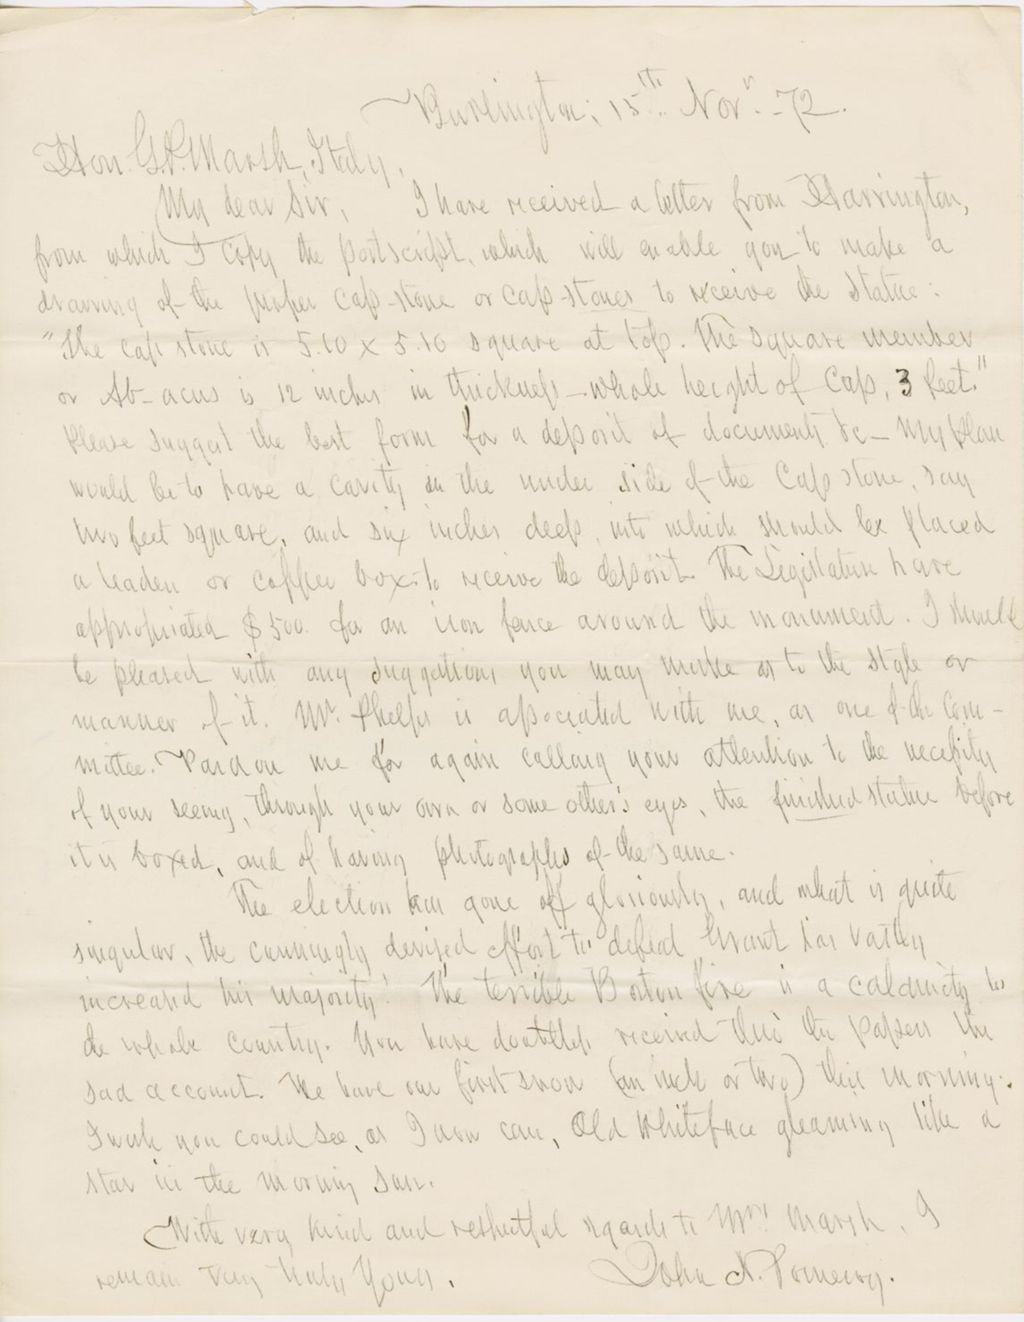 Burlington, 15th. Novr. -72.
Hon. G.P. Marsh, Italy,
My dear Sir, I have received a letter from Harrington,
from which I copy the postscript, which will enable you to make a
drawing of the proper cap-stone or cap-stones to receive the statue:
"The cap stone is 5.10 x 5.10 square at top. The square member
or Ab-acus is 12 inches in thickness - whole height of Cap, 3 feet."
Please suggest the best form for a deposit of documents &c - My plan
would be to have a cavity in the under side of the Cap stone, say
two feet square, and six inches deep, into which should be placed
a leaden or copper box to receive the deposit. The Legislature have
appropriated $500. for an iron fence around the monument. I should
be pleased with any suggestions you may make as to the style or
manner of it. Mr. Phelps is associated with me, as one of the Com-
mittee. Pardon me for again calling your attention to the necessity
of your seeing, through your own or some other's eyes, the finished statue before
it is boxed, and of having photographs of the same.
The election has gone off gloriously, and what is quite
singular, the cunningly devised effort to defeat Grant has vastly
increased his majority! The terrible Boston fire is a calamity to
the whole country. You have doubtless received thro' the papers the
sad account. We have our first snow (an inch or two) this morning.
I wish you could see, as I now can, Old Whiteface gleaming like a
star in the morning sun.
With very kind and respectful regards to Mrs. Marsh, I
remain Very truly Yours, John N. Pomeroy.